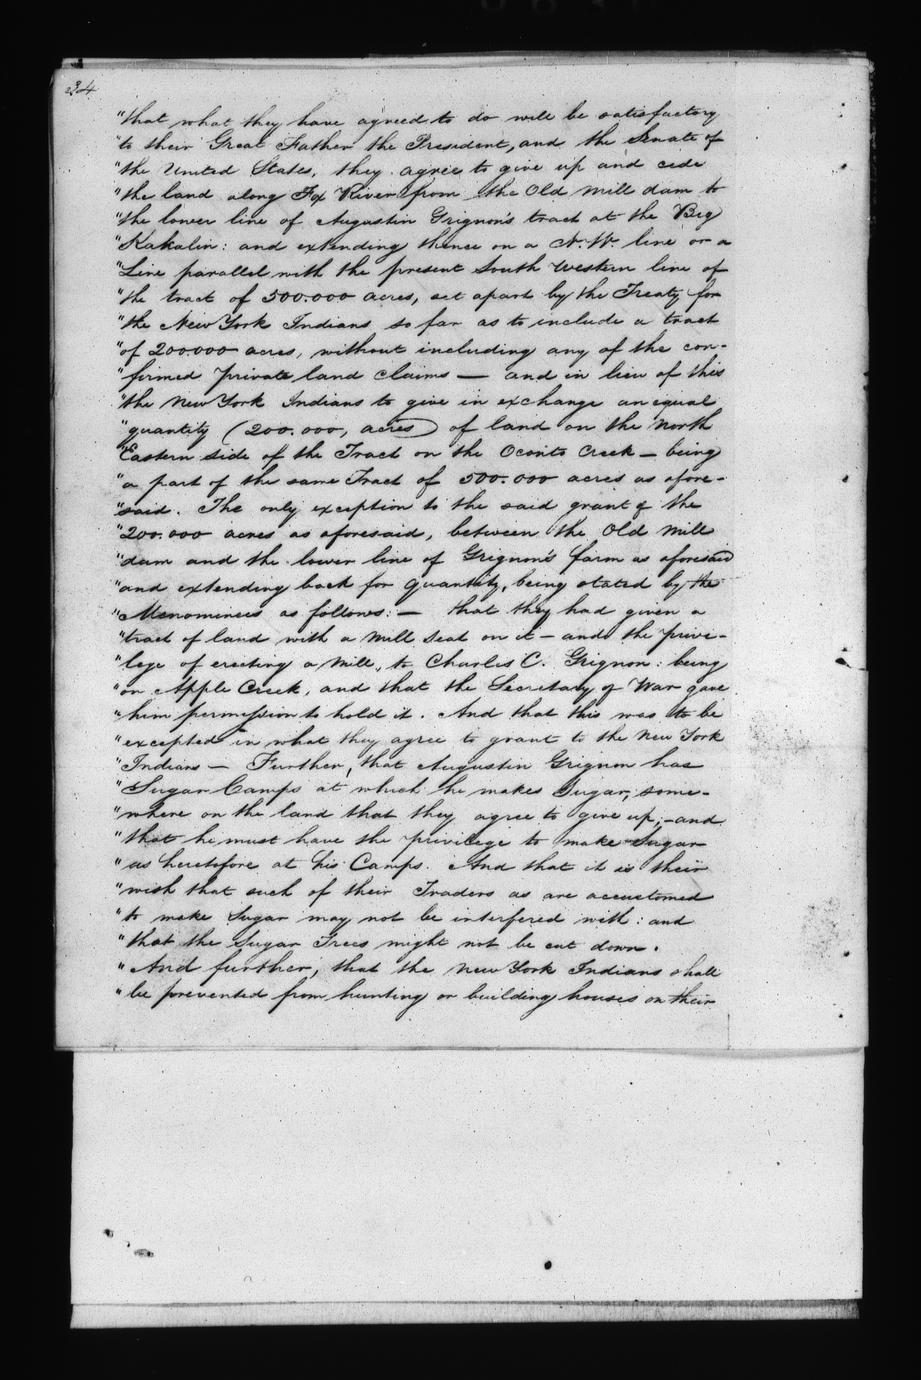 34
"that what they have agreed to do will be satisfactory
"to their Great Father the President, and the Senate of
"the United States, they agree to give up and cede
"the land along Fox River from the Old Mill dam to
"the lower line of Augustin Grignon's tract at the Big
"Kakalin: and extending thence on a N.W. line or a
"Line parallel with the present South Western line of
"the tract of 500.000 acres, set apart by the Treaty for
"the New York Indians so far as to include a tract
"of 200.000 acres, without including any of the con-
"firmed private land claims — and in lieu of this
"the New York Indians to give in exchange an equal
"quantity (200.000, acres) of land on the North
"Eastern side of the Tract on the Oconto Creek — being
"a part of the same Tract of 500.000 acres as afore-
"said. The only exception to the said grant of the
"200.000 acres as aforesaid, between the Old Mill
"dam and the lower line of Grignon's farm as aforesaid
"and extending back for quantity, being stated by the
"Menominees as follows: — that they had given a
"tract of land with a Mill Seat on it — and the privi-
"lege of erecting a Mill, to Charles C. Grignon: being
"on Apple Creek, and that the Secretary of War gave
"him permission to hold it. And that this was to be
"excepted in what they agree to grant to the New York
"Indians — Further, that Augustin Grignon has
"Sugar Camps at which he makes Sugar, some-
"where on the land that they agree to give up, - and
"that he must have the privilege to make Sugar
"as heretofore at his Camps. And that it is their
"wish that such of their Traders as are accustomed
"to make Sugar may not be interfered with: and
"that the Sugar Trees might not be cut down.
"And further, that the New York Indians shall
"be prevented from hunting or building houses on their